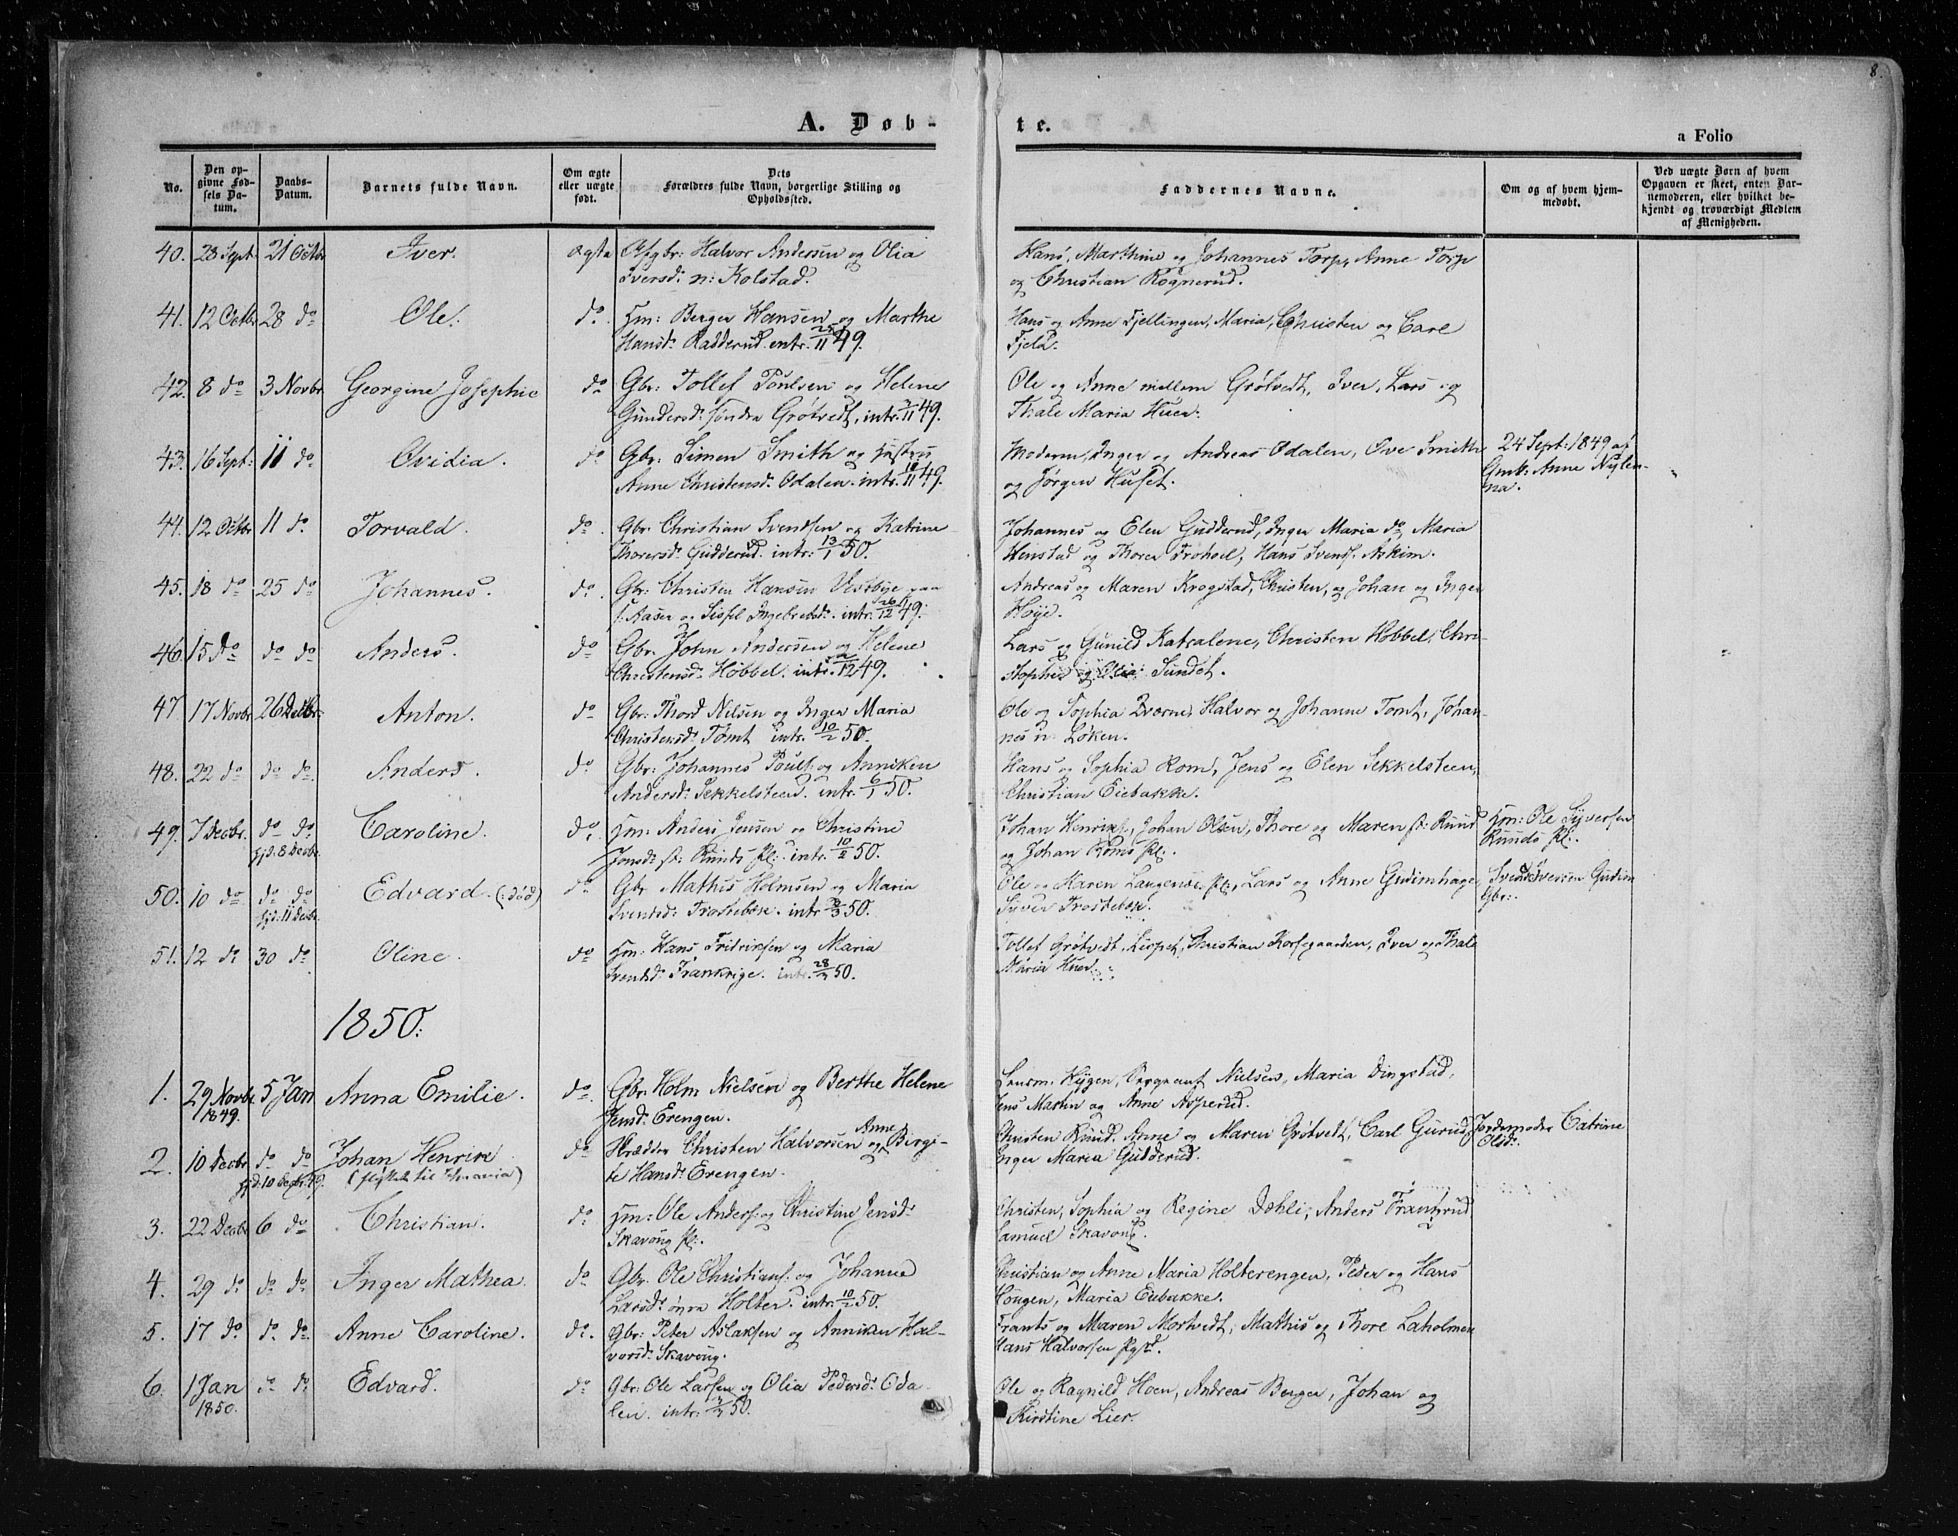 8.
A. Døb-
te.
a Folio
No.
Den op-
givne Fød-
sels Da-
tum.
Daabs-
Datum.
Barnets fulde Navn.
Om ægte
eller uægte
født.
Dets
Forældres fulde Navn, borgerlige Stilling og
Opholdssted.
Faddernes Navne.
Om og af hvem hjem-
medøbt.
Ved uægte Børn af hvem
Opgaven er skeet, enten Bar-
nemoderen, eller hvilket be-
kjendt og troværdigt Medlem
af Menigheden.
40. 23 Sept: 21 Octbr Iver. Halvor Andersen og Olia
Iversd: n: Kolstad.
Hans, Marthine og Johannes Torp, Anne Torp
og Christian Rognerud.
41. 12 Octbr 28 do Ole. do. Hm: Berger Hansen og Marthe
Hansd: Radderud. intr. 25/11 49.
Hans og Anne Fjellingen, Maria, Christen og Carl
Fjeld.
42. 8 do 3 Novbr Georgine Josephie do Gbr: Tollef Poulsen og Helene
Gundersd: søndre Grøtvedt, intr. 49.
Ole og Anne mellem Grøtvedt, Iver, Lars og
Thale Maria Huer.
43. 16 Sept: 11 do Ovidia. do Gbr: Simen Smith og Hustru
Anne Christensd: Odalen. intr. 49.
Moderen, Inger og Andreas Odalen, Ove Smith
og Jørgen Huset.
24 Sept: 1849 af
Gmk: Anne Nylen-
na.
44. 12 Octbr 11 do Torvald. do. Gbr. Christian Svendsen og Katrine
Thorersd: Gudderud. intr: 13/1 50.
Johannes og Elen Gudderud, Inger Maria do, Maria
Henstad og Thorer Frohoel, Hans Svens: Askim.
45. 18 do 25 do Johannes. do. Gbr: Christen Hansen Vestbye paa
Aasen og Sissel Ingebretsd: intr: 26/12 49:
Andreas og Maren Krogstad, Christen, og Johan og Inger
Høye.
46. 15 do do do Anders. do Gbr. John Andersen og Helene
Christensd: Hobbel. intr. 49.
Lars og Gunild Katralene, Christen Hobbel, Chri-
stopher og Olia Sundet.
47 17 Novbr 26 Decbr: Anton. do Gbr: Thord Nielsen og Inger Maria
Christensd: Tomt intr. 10/2 50.
Ole og Sophia Dverne, Halvor og Johanne Tomt, Johan-
nes n: Løken.
48. 22 do do do Anders. do Gbr: Johannes Pouls: og Anniken
Andersd: Sekkelsteen. intr. 6/1 50.
Hans og Sophia Rom, Jens og Elen Sekkelsteen,
Christian Eiebakke.
49. 7 Decbr. do do Caroline. do. Hm: Anders Jensen og Christine
Hjd: 8 Decbr.
Jonsd: st: Ruuds pl: intr: 10/2 50.
Johan Henriks, Johan Olsen, Thore og Maren st: Ruud
og Johan Roms pl:.
Hm: Ole Syversen
Ruuds pl:.
50. 10 do do do Edvard. (:død) do Gbr Mathis Holmsen og Maria
Hjd: 11 Decbr.
Svendsd: Trostebæk. intr 50.
Ole og Karen Langenæs pl:, Lars og Anne Gudimhage,
Syver Trostebæk.
Svend Iversen Gudim
Gbr:.
51. 12 do 30 do Oline. do Hm: Hans Fridriksen og Maria
Svendsd: Frankrige. intr. 50.
Tollef Grøtvedt, Christian Korsegaarden, Iver og Thale
Maria Huer.
1850.
1. 29 Novbr 5 Jan Anna Emilie. do Gbr. Holm Nielsen og Berthe Helene
1849.
Jensd: Erengen.
Lensm: Hejgen, Sergeant Nielsen, Maria Dingstad,
Jens Martin og Anne Asperud.
2. 10 Decbr do do Johan Henrik do Skrædder Christen Halvorsen og Anne Birgi-
Hjd: 10 Decbr 49.
te Hansd: Erengen.
Christen Ruud, Anne og Maren Grøtvedt, Carl Gurud,
Inger Maria Gudderud.
Jordemoder Catrine
Olsd:
3. 22 Decbr 6 do Christian. do Hm: Ole Anders: og Christine Jensd:
Skavong pl:.
Christen, Sophia og Regine Dæhli, Anders Frantsrud
Samuel Skavong.
4. 29 do do do Inger Mathea. do Gbr. Ole Christians: og Johanne
Larsd: øvre Holter. intr. 10/2 50.
Christian og Anne Maria Holterengen, Peder og Hans
Hougen, Maria Eiebakke.
5. 17 do do do Anne Caroline. do. Gbr: Peter Aslaksen og Anniken Hal-
vorsd: Skavong.
Frants og Maren Mortvedt, Mathis og Thore Laholmen
Hans Halvorsen
6. 1 Jan do do Edvard. do Gbr: Ole Larsen og Olia Pedersd: Oda
1850.
len. intr. 50.
Ole og Ragnild Hoen, Andreas Berger, Johan og
Kirstine Lier.